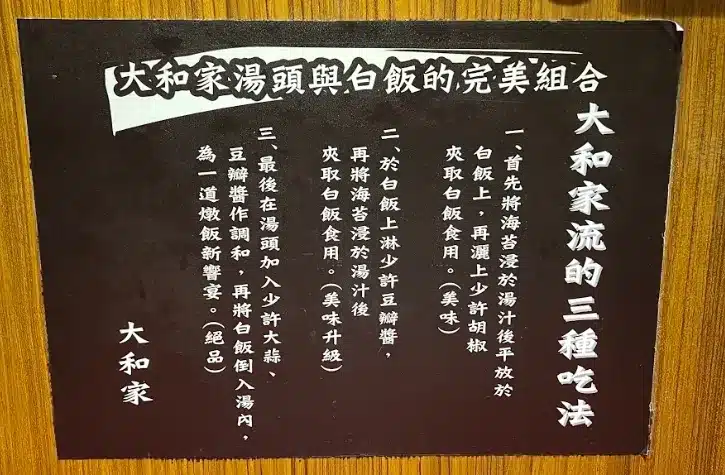 大和家湯頭與白飯的完美組合
大和家流的三種吃法
一、首先將海苔浸於湯汁後平放於
白飯上，再灑上少許胡椒
夾取白飯食用。（美味）
二、於白飯上淋少許豆瓣醬，
再將海苔浸於湯汁後
夾取白飯食用。（美味升級）
三、最後在湯頭加入少許大蒜、
豆瓣醬作調和，再將白飯倒入湯內，
為一道燉飯新饗宴。（絕品）
大和家